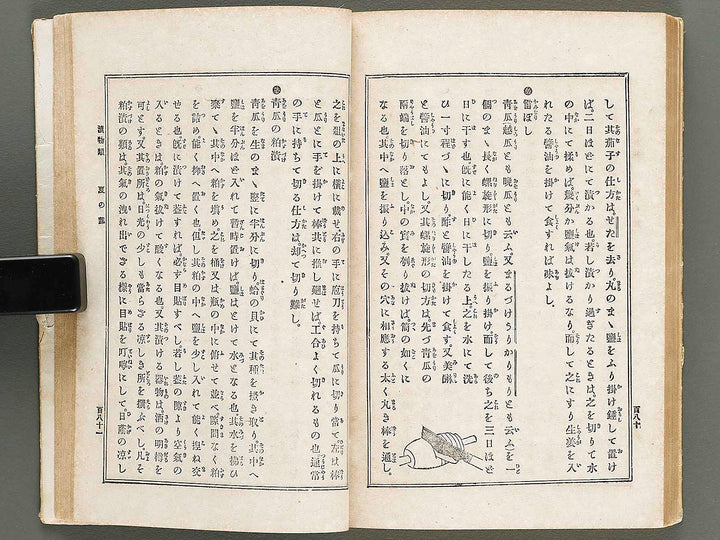 して其茄子の仕方は、せたを去り丸のまゝ鹽をふり掛け錘して置け
ば。二日ほどにて漬かる也若し漬かり過ぎたるときは之を切りて水
の中にて揉めば。幾分か鹽氣は拔けるなり。而して之にすり生姜を入
れたる醬油を掛けて食すれば味よし。
雷ぼし
靑瓜越瓜とも晩瓜とも云ふ又まるづけうり。かりもりとも云ふを一
個のまゝ長く螺旋形に切り鹽を振り掛け。而して後ち之を三日ほど
日に干す也旣に能く日に干したる上之を水にて洗
ひ一寸程づゝに切り酢と醬油を掛けて食す。又美淋
と醬油にてもよし又其螺旋形の切方は。先づ靑瓜の
兩端を切り落とし。中の實を刳り拔けば。筒の如くに
なる也其中へ鹽を振り込み又その穴に相應する太く丸き棒を通し。
百八十
之を俎の上に橫に載せ右の手に庖刀を持ちて瓜に切り當て左は棒
と瓜とに手を掛けて棒共に推し廻せば。工合よく切れるもの也通常
の手に持ちて切る仕方は。却て切り難し。
靑瓜の粕漬
靑瓜を生のまゝ竪に半分に切り。蛤の貝にて其種を搔き取り。其中へ
鹽を半分ほど入れて暫時置けば鹽はとけて水となる也其水を拂ひ
棄て。其中へ粕を塡め之を桶又は甁の中に俯せて並べ隙間なく粕
を詰め能く抑へ置く也但し其粕の中へ鹽を少し入れて能く捏ね交
せる也旣に漬けて葢すれば。必す目貼すべし。若し葢の隙より空氣の
入るときは粕の氣拔けて酸くなる也又其漬ける器物は。酒の明樽を
可とす。又其置所は。日光の少しも當らざる凉しき所を撰ぶべし。凡そ
粕漬の類は。其氣の洩れ出でざる樣に目貼を叮嚀にして。日蔭の凉し
漬物類 夏の部
百八十一